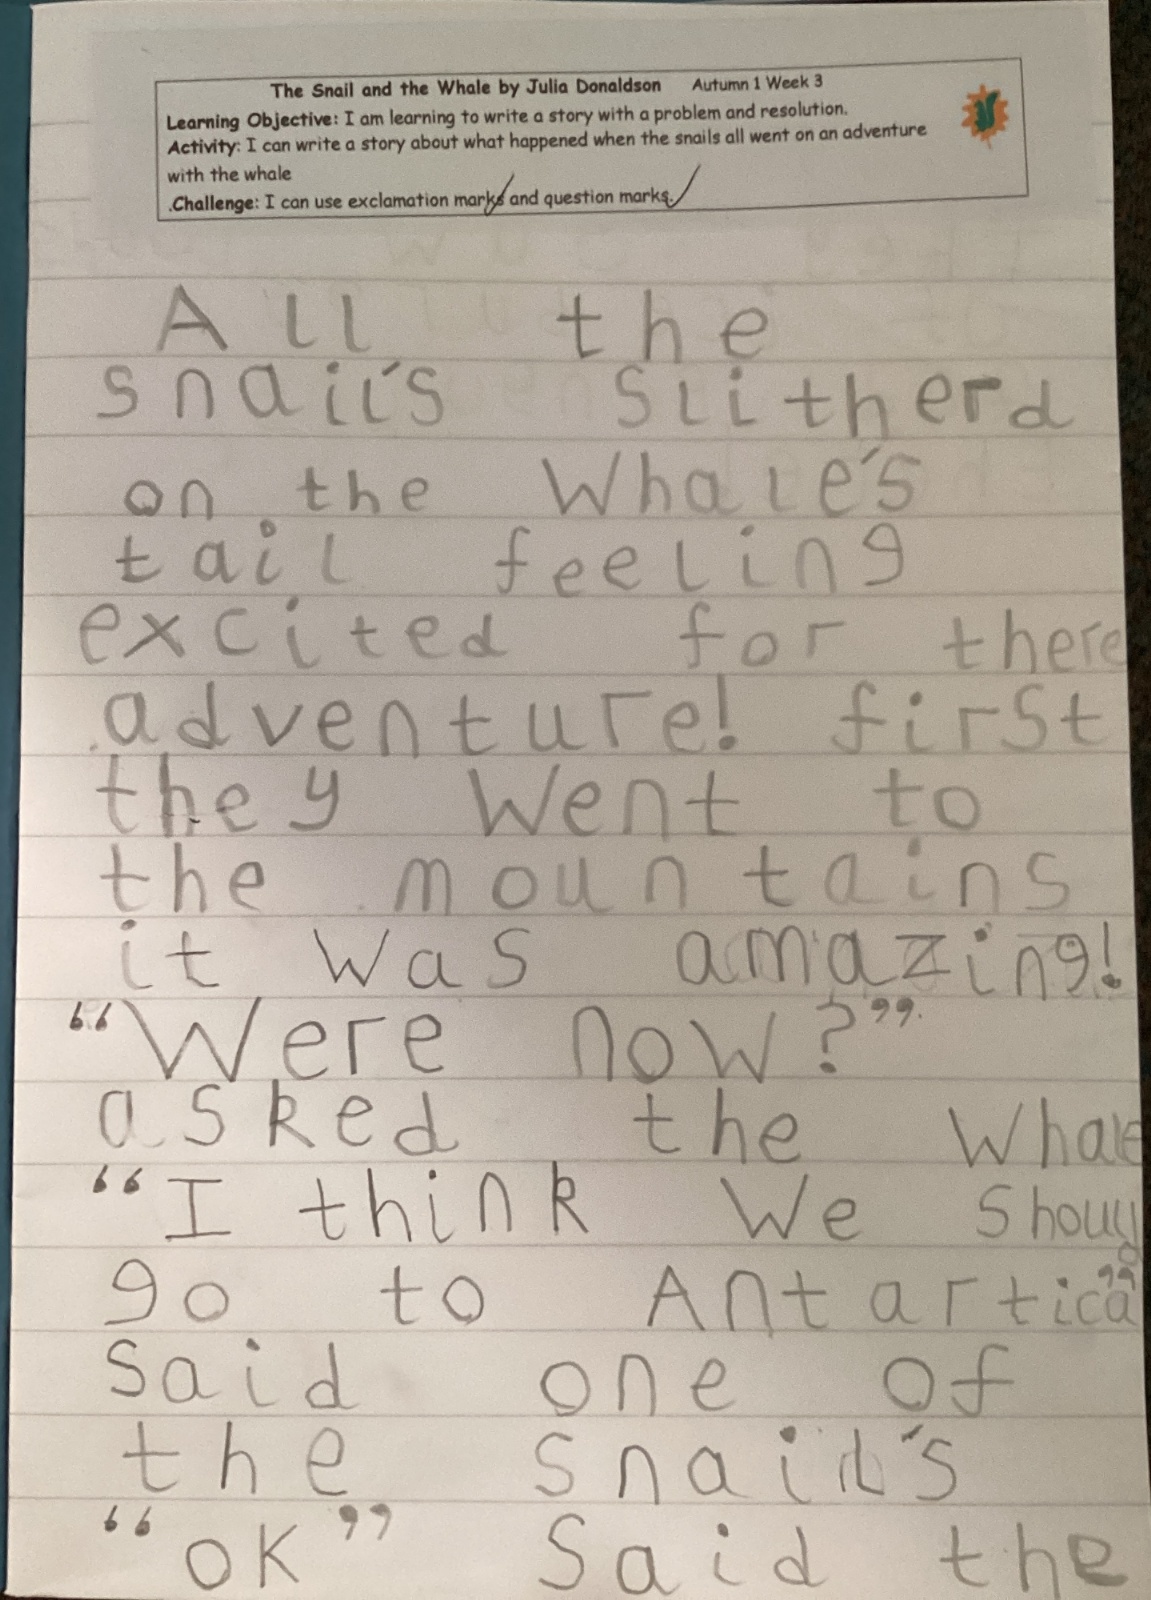 The Snail and the Whale by Julia Donaldson Autumn 1 Week 3
Learning Objective: I am learning to write a story with a problem and resolution.
Activity: I can write a story about what happened when the snails all went on an adventure
with the whale
.Challenge: I can use exclamation marks and question marks.
All the
snail's Slitherd
on the Whale's
tail feeling
excited for there
adventure! first
they Went to
the mountains
it Was amazing!
“Were now?”
asked the Whale
“I think We Should
go to Antartica”
Said one of
the snail's
“OK” Said the